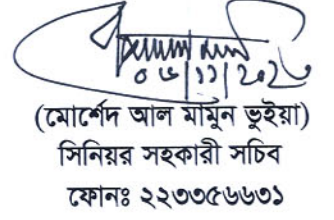 ০৬/১১/২০২৩
(মোর্শেদ আল মামুন ভূইয়া)
সিনিয়র সহকারী সচিব
ফোনঃ ২২৩৩৫৬৬৩১